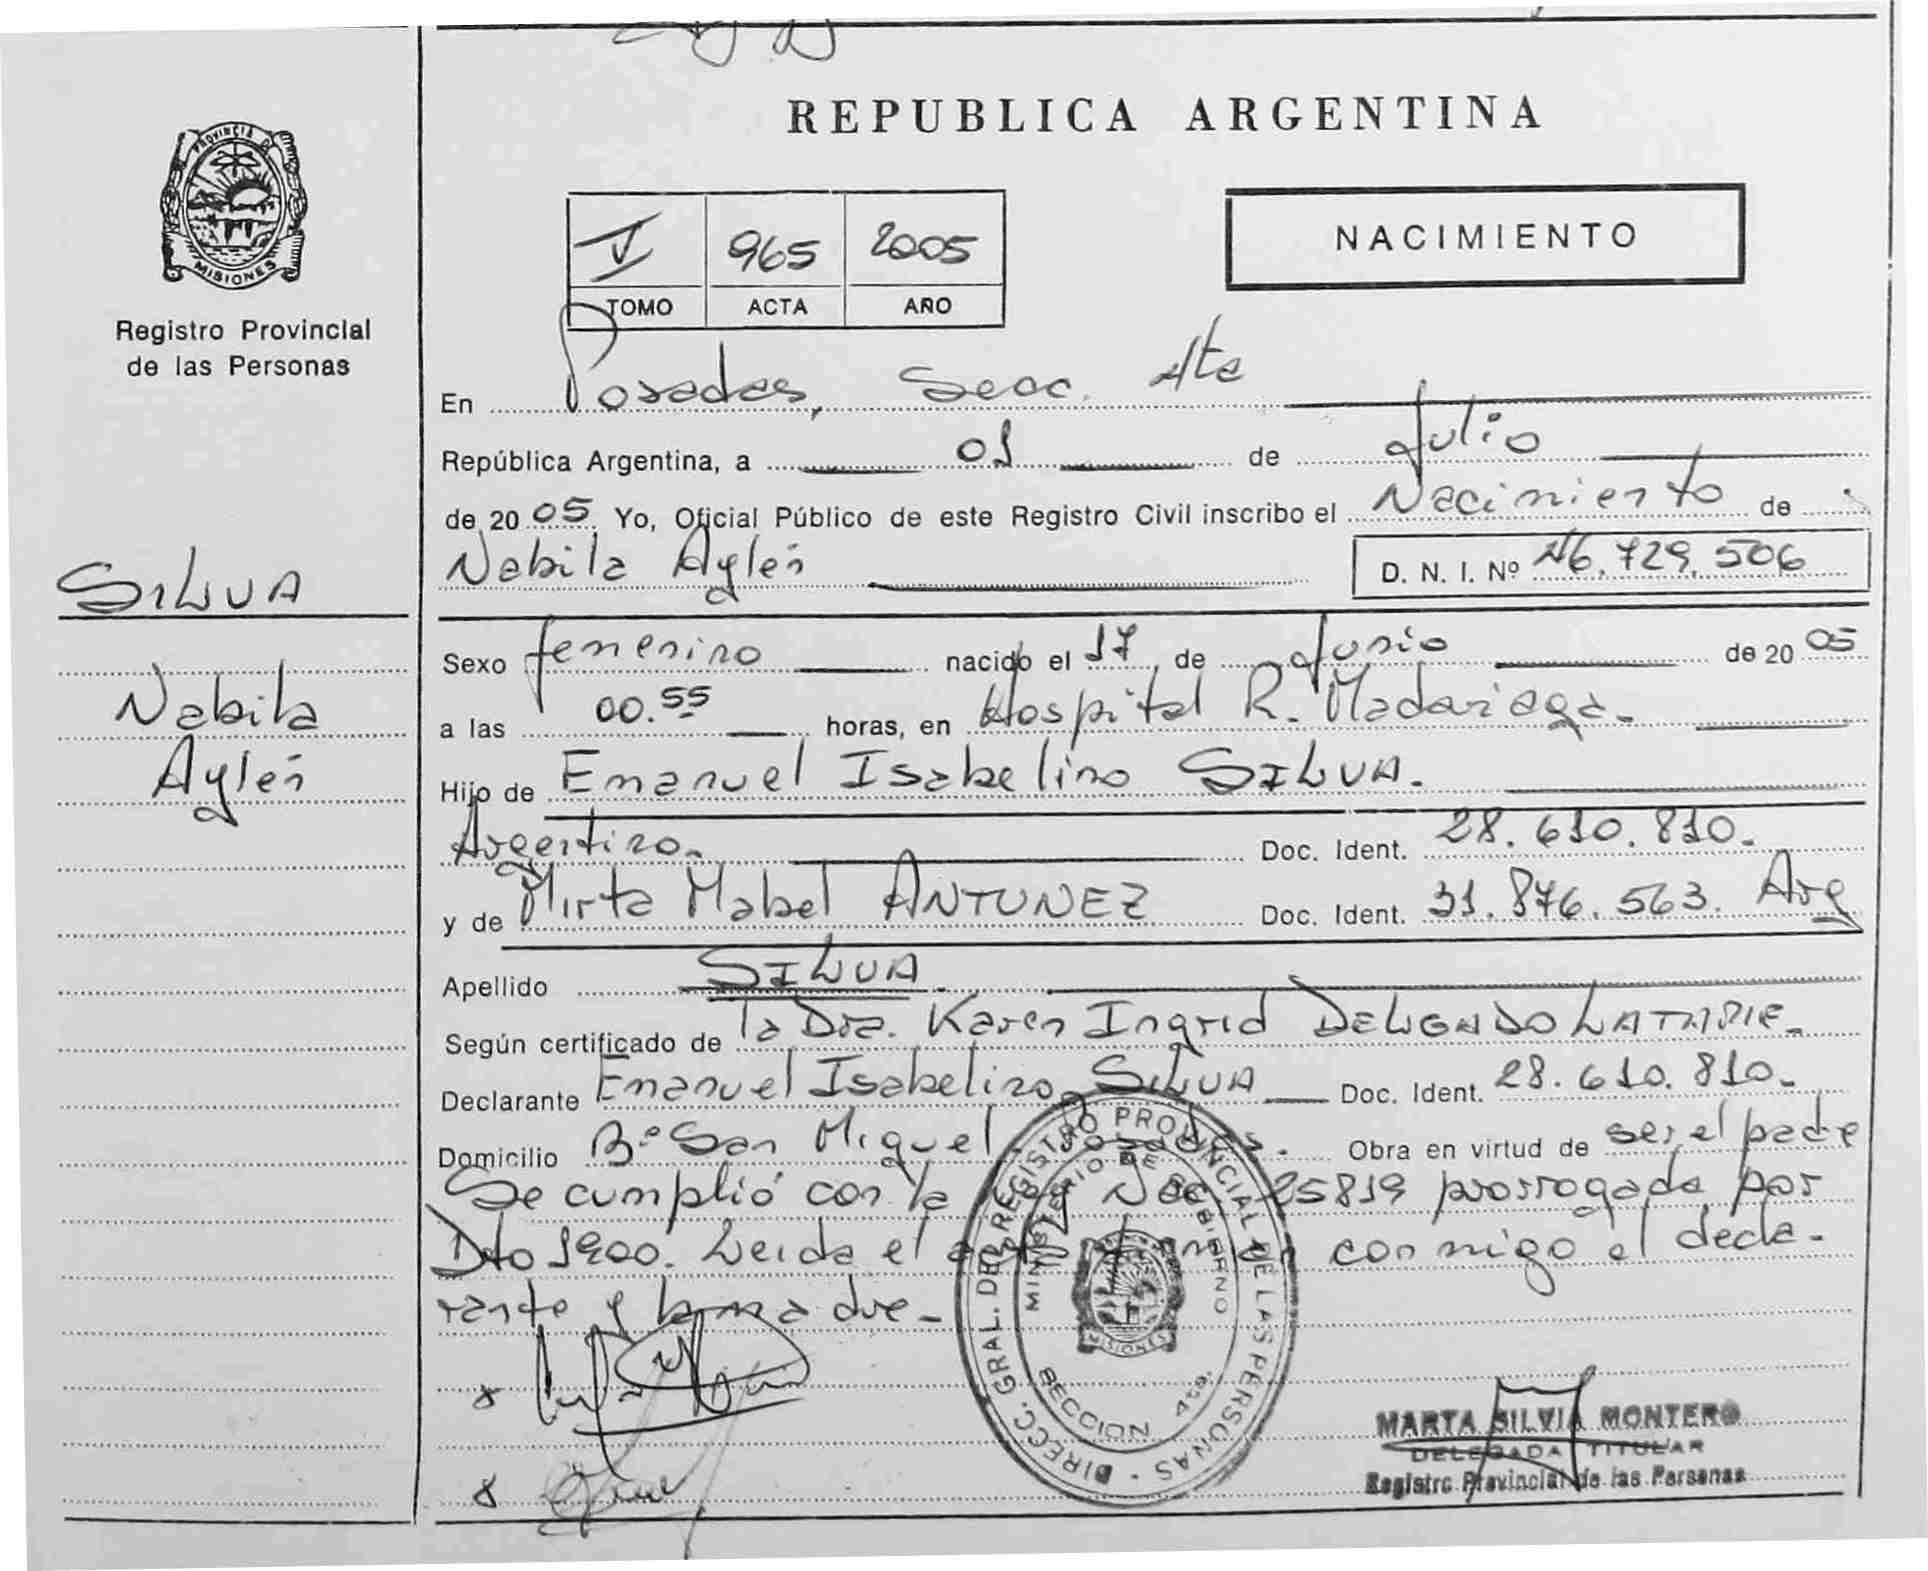 REPUBLICA ARGENTINA
PROVINCIA DE
MISIONES
Registro Provincial
de las Personas
V 965 2005
TOMO ACTA AÑO
NACIMIENTO
En Posadas, Secc. 4ta
República Argentina, a 01 de Julio
de 2005 Yo, Oficial Público de este Registro Civil inscribo el Nacimiento de
Nabila Aylén D. N. I. Nº 46.729.506
SILVA
Nabila
Aylén
Sexo femenino nacido el 17, de Junio de 2005
a las 00.55 horas, en Hospital R. Madariaga.
Hijo de Emanuel Isabelino SILVA.
Argentino. Doc. Ident. 28.610.810.
y de Mirta Mabel ANTUNEZ Doc. Ident. 31.876.563. Arg
Apellido SILVA.
Según certificado de la Dra. Karen Ingrid DELGADO LATADIE.
Declarante Emanuel Isabelino SILVA Doc. Ident. 28.610.810.
Domicilio Bº San Miguel Posadas. Obra en virtud de ser el padre
Se cumplió con la Ley Nac. 25819 prorrogada por
Dto 1900. Leida el acta firman conmigo el decla-
rante y la madre-
DIRECC. GRAL. DEL REGISTRO PROVINCIAL DE LAS PERSONAS
MINISTERIO DE GOBIERNO
MISIONES
SECCION 4ta.
MARTA SILVIA MONTERO
DELEGADA TITULAR
Registro Provincial de las Personas